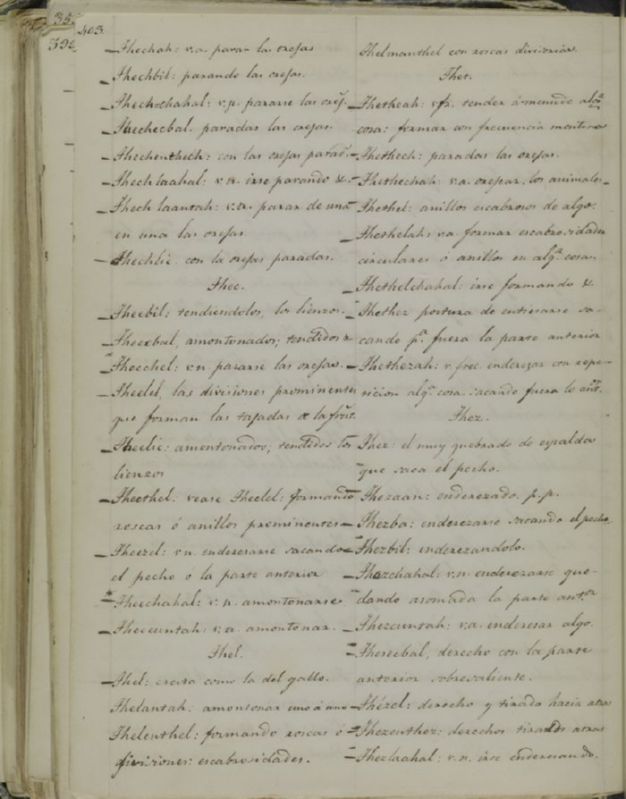 35.
392
403.
Thechah: v.a. parar las orejas
Thechbil: parando las orejas.
Thechchahal: v.n. pararse las orej.s
Thechecbal. paradas las orejas.
Thechenthech: con las orejas parad.s
Thechlaahal: v.n. irse parando &.
Thechlaantah: v.a. parar de una
en una las orejas
Thechlic. con la orejas paradas.
Thee.
Theebil: tendiendolos, los lienzos.
amontonados; tendidos
Theechel: v.n. pararse las orejas.
Theelel, las divisiones prominentes
que forman las tajadas de la frut.
Theelic: amontonados; tendidos los
lienzos
Theethel: vease Theelel: formando
roscas ó anillos prominentes
Theezel: v.n. enderesarse sacando
el pecho ó la parte anterior
Theechahal: v.n. amontonarse
v.a. amontonar.
Thel.
Thel: cresta como la del gallo.
Thelantah: amontonar uno á uno
Thelenthel: formando roscas ó
divisiones: escabrosidades.
Thelmanthel con roscas divisiones.
Thet.
tender á menudo alg.a
cosa: formar con frecuencia montones
Thethech: paradas las orejas.
Thethechah: v.a. orejear, los animales
Thethel: anillos escabrosos de algo.
Thethelah: v.a. formar escabrosidades
circulares ó anillos en alg.a cosa.
Thethelchahal: irse formando &.
Thethez postura de entiesarse sa-
cando p.a fuera la parte anterior
Thethezah: v. frec. enderezar con repe-
ticion alg.a cosa sacando fuera lo ant.
Thez.
Thez: el muy quebrado de espalda
que saca el pecho.
Thezaan: enderezado. p.p.
Thezba: enderezarse sacando el pecho
Thezbil: enderezandolo.
Thezchahal: v.n. enderezarse que-
dando asomada la parte ant.or
Thezcuntah: v.a. enderesar algo.
Thezecbal, derecho con la parte
anterior sobresaliente.
Thézel: derecho y tirado hacia atras
Thezenthez: derechos tirados atras
Thezlaahal: v.n. irse enderesando.